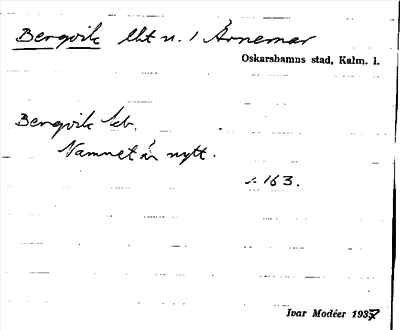 Bergvik lht u. 1 Årnemar
Oskarshamns stad, Kalm. l.
Bergvik lkb.
Namnet är nytt.
s. 163.
Ivar Modéer 1937